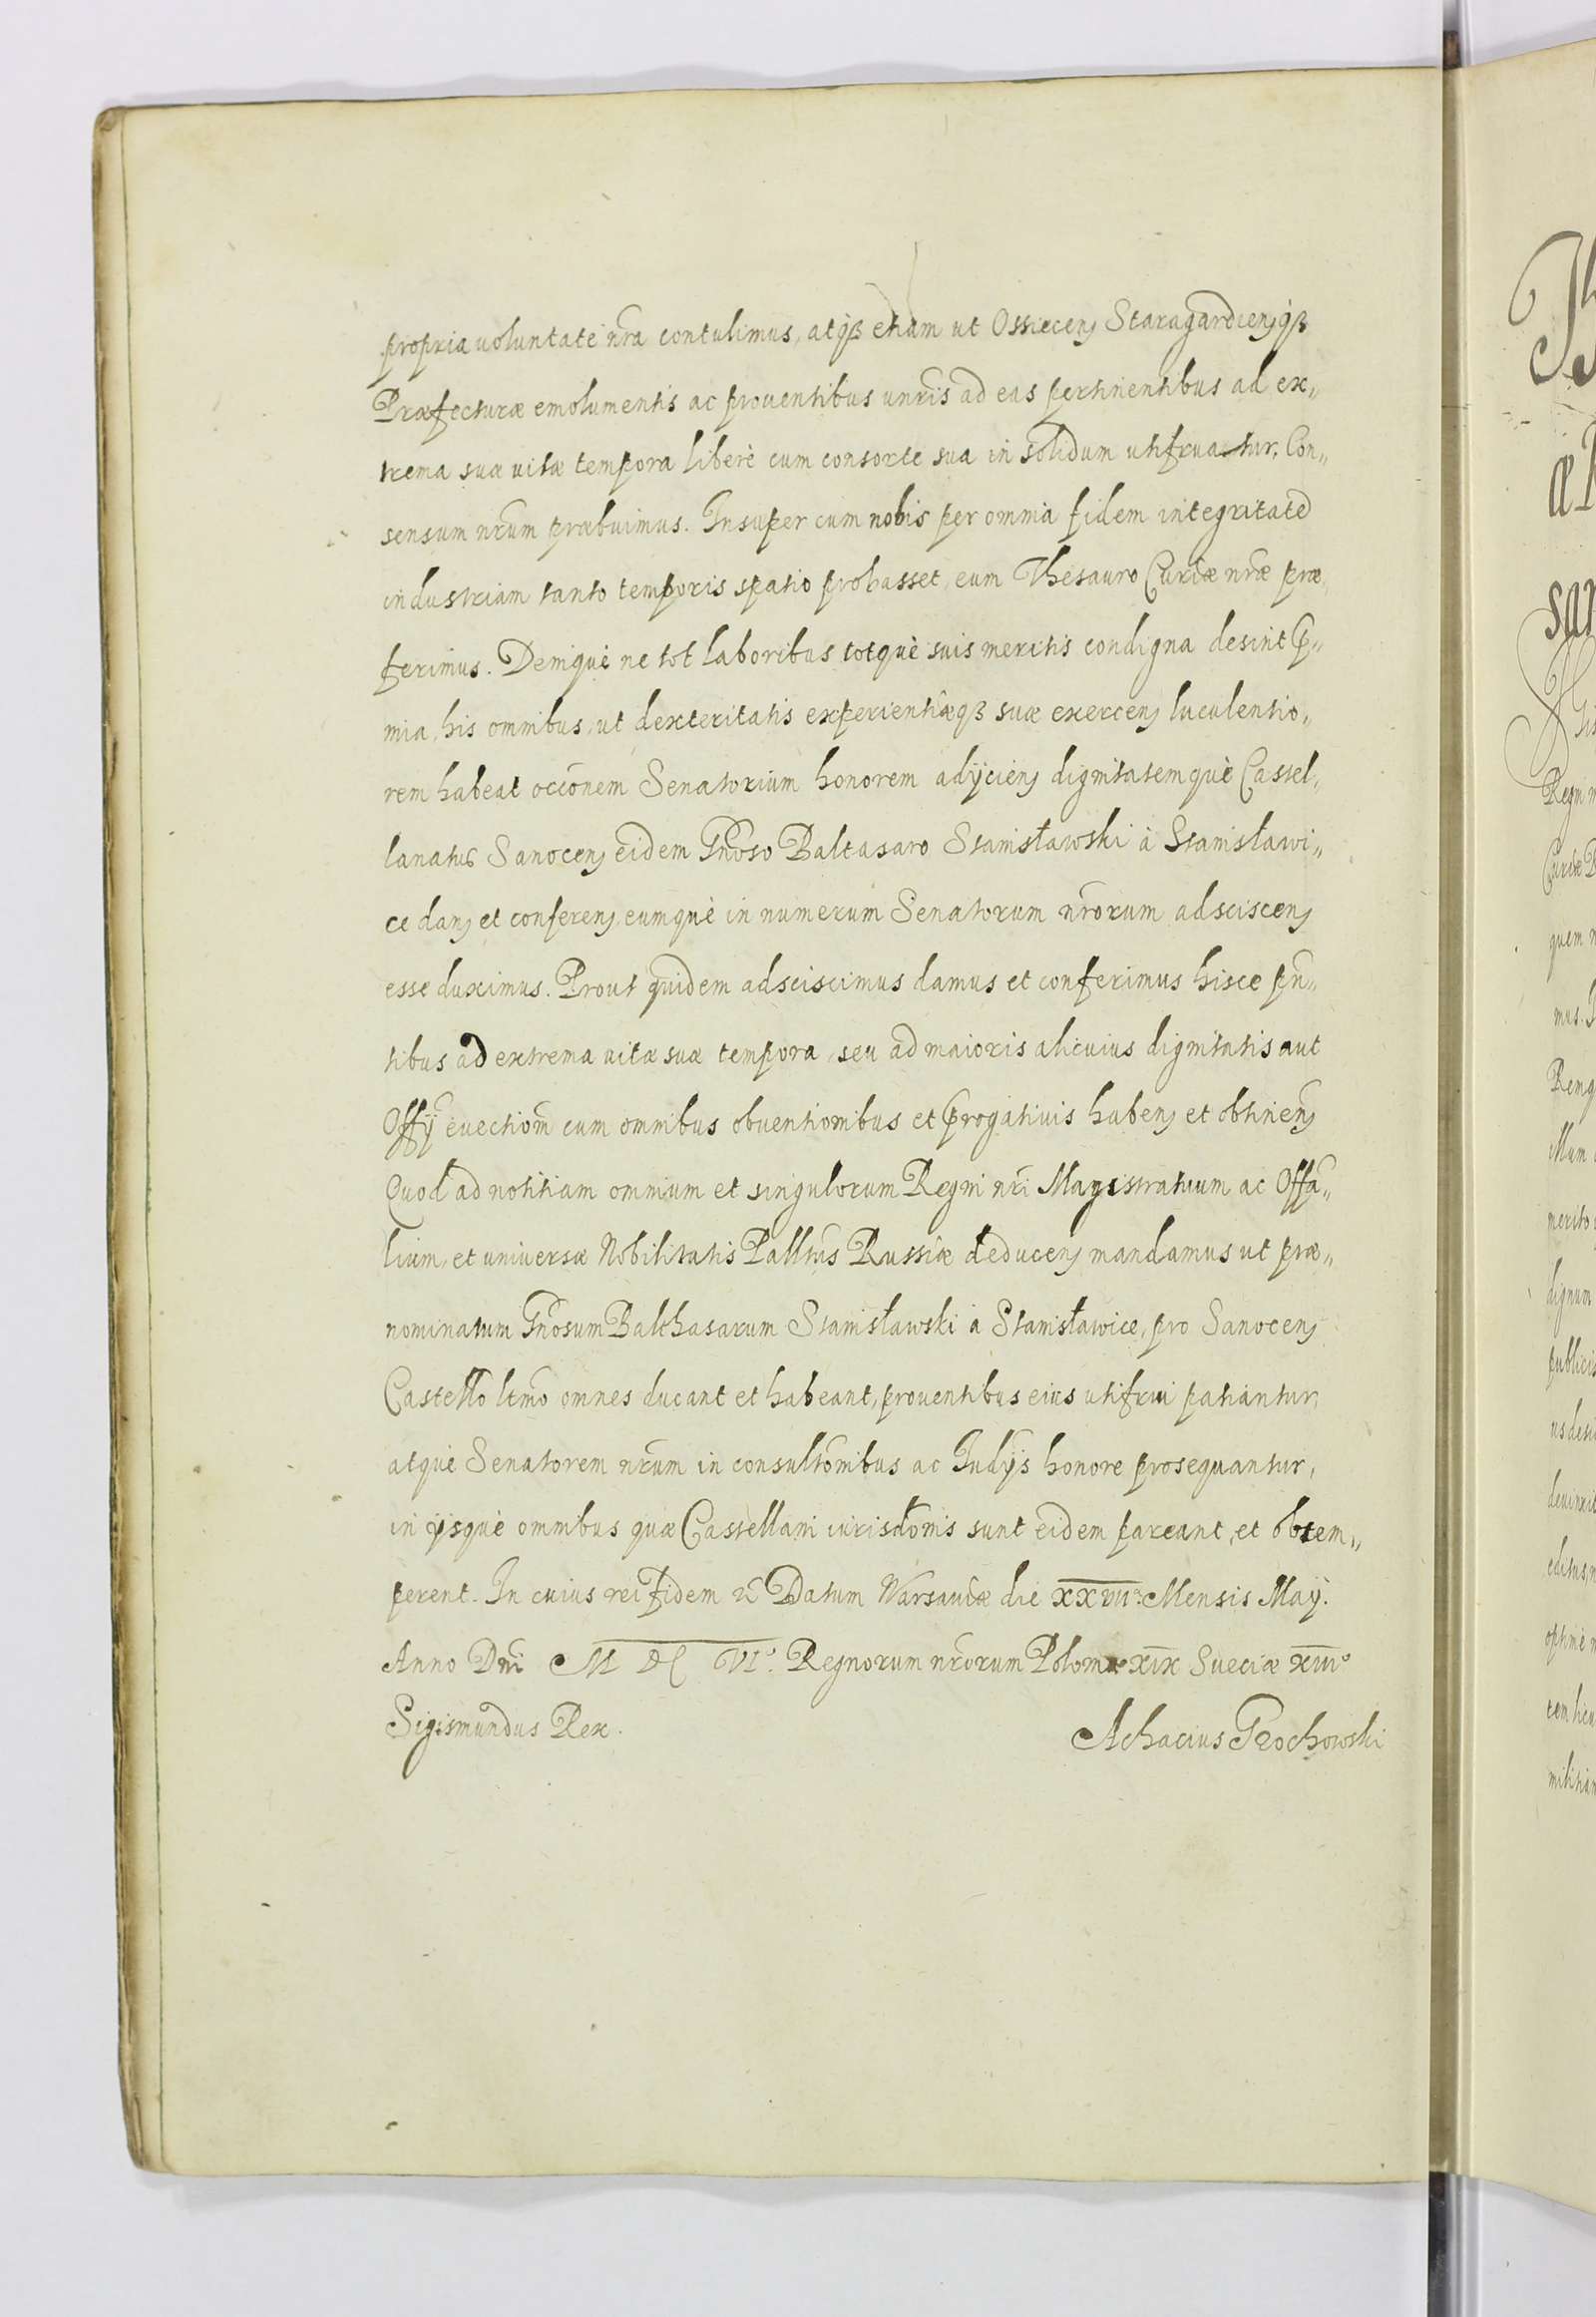 propria voluntate nrã contulimus, atq3 etiam ut Ossiecen̄ Staragardien̄q3
Præfecturæ emolumentis ac prouentibus unrĩs ad eas pertinentibus ad ex„
trema suæ uitæ tempora liberè cum consorte sua in solidum utifruatur, Con„
sensum nrũm præbuimus. Insuper cum nobis per omnia fidem integritatẽ
industriam tanto temporis spatio probasset, eum Thesauro Curiæ nræ̃ præ„
ferimus. Deniquè ne tot laboribus totquè suis meritis condigna desint p̃„
mia, his omnibus, ut dexteritatis experientiæq3 suæ exercen̄ luculentio„
rem habeat occõnem Senatorium honorem adijcien̄ dignitatemquè Castel„
lanatus Sanocen̄ eidem Gnõso Baltasaro Stanisławski à Stanisławi„
ce dan̄ et conferen̄ eumquè in numerum Senatorum nrõrum adsciscen̄
esse duximus. Prout quidem adsciscimus damus et conferimus hisce pñ„
tibus ad extrema uitæ suæ tempora, seu ad maioris alicuius dignitatis aut
Offỹ euectiom̃ cum omnibus obuentionibus et p̃rogatiuis haben̄ et obtinen̄
Quod ad notitiam omnium et singulorum Regni nrĩ Magistratuum ac Offã„
lium, et universæ Nobilitatis Palltũs Russiæ deducen̄ mandamus ut præ„
nominatum Gnõsum Balthasarum Stanisławski à Stanisławice, pro Sanocen̄
Castello ltmõ omnes ducant et habeant, prouentibus eius utifrui patiantur,
atquè Senatorem nrũm in consultõnibus ac Iudỹs honore prosequantur,
in ijsquè omnibus quæ Castellani iurisdõnis sunt eidem pareant, et obtem„
perent. In cuius rei fidem &c̃ Datum Warsauiæ die XXVII.ª Mensis Maÿ.
Anno Dnĩ M DC VI.º Regnorum nrõrum Poloniæ XIX Sueciæ XIII.º
Sigismundus Rex. Achacius Grochowski